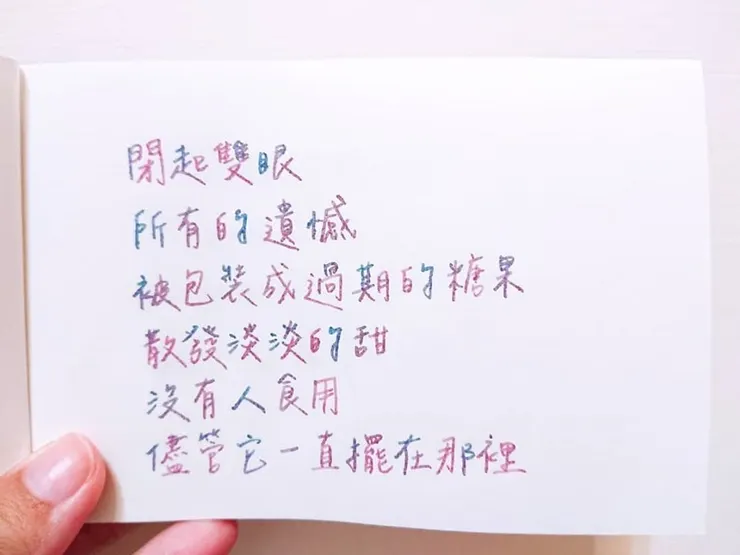 閉起雙眼
所有的遺憾
被包裝成過期的糖果
散發淡淡的甜
沒有人食用
儘管它一直擺在那裡